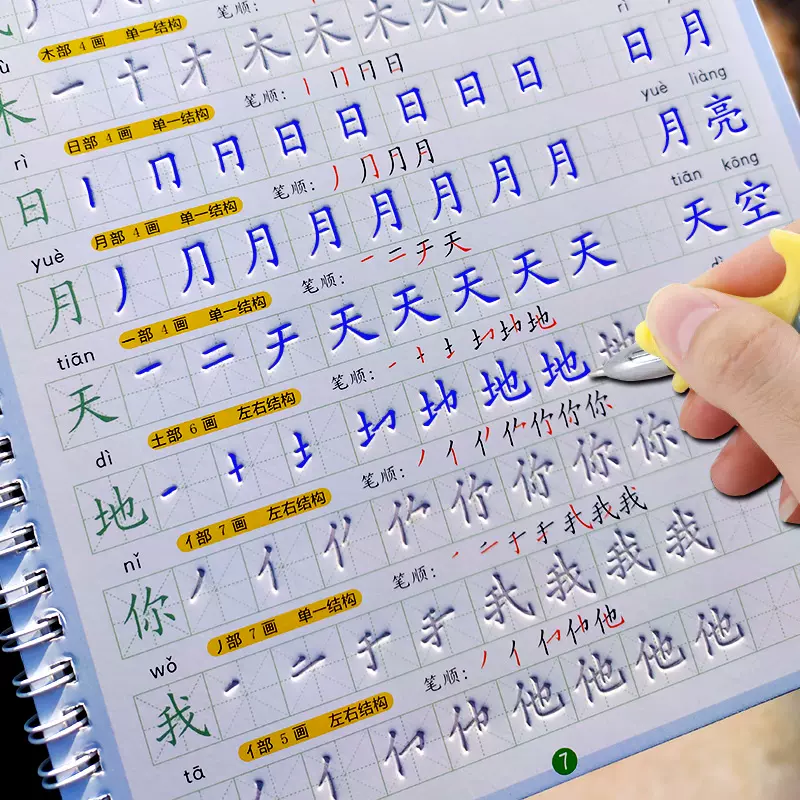 木部 4 画 单一结构 笔顺：
木 一 十 才 木 木 木 木
rì
日部 4 画 单一结构 笔顺： 丨 冂 日 日
rì
日 丨 冂 月 日 日 日 日 日 日 月
yuè liàng
月部 4 画 单一结构 笔顺： 丿 ⺆ 月 月
yuè
月 丿 ⺆ 月 月 月 月 月 月 月 亮
tiān kōng
一部 4 画 单一结构 笔顺： 一 二 于 天
tiān
天 一 二 于 天 天 天 天 天 天 空
土部 6 画 左右结构 笔顺： 一 十 土 地
dì
地 一 十 土 地 地 地
亻部 7 画 左右结构 笔顺： 丿 亻 你 你
nǐ
你 丿 亻 你 你 你 你
丿部 7 画 单一结构 笔顺： 一 二 于 手 我 我 我
wǒ
我 一 二 于 手 我 我 我 我
亻部 5 画 左右结构 笔顺： 丿 亻 他 他
tā
亻 他 他 他 他 他
7